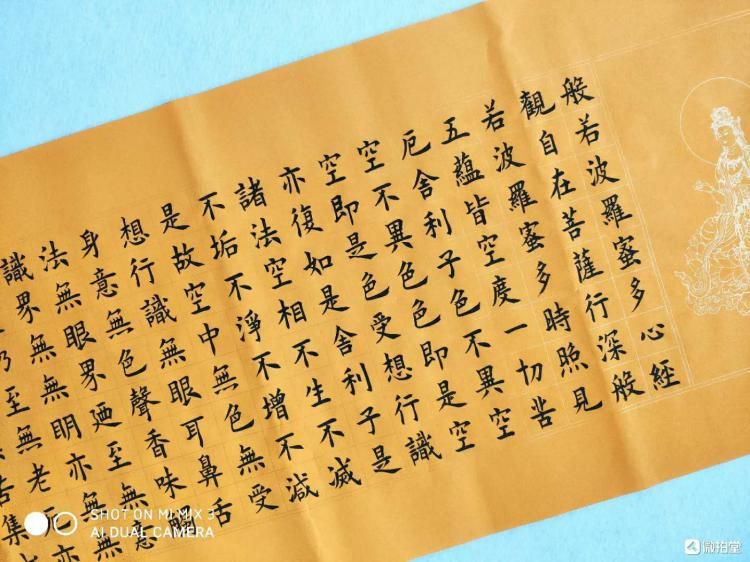 般若波羅蜜多心經
觀自在菩薩行深般
若波羅蜜多時照見
五蘊皆空度一切苦
厄舍利子色不異空
空不異色色即是空
空即是色受想行識
亦復如是舍利子是
諸法空相不生不滅
不垢不淨不增不減
是故空中無色無受
想行識無眼耳鼻舌
身意無色聲香味觸
法無眼界廼至無意
識界無無明亦無無
乃至無老死亦
苦集
SHOT ON MI MIX 3
AI DUAL CAMERA
微拍堂